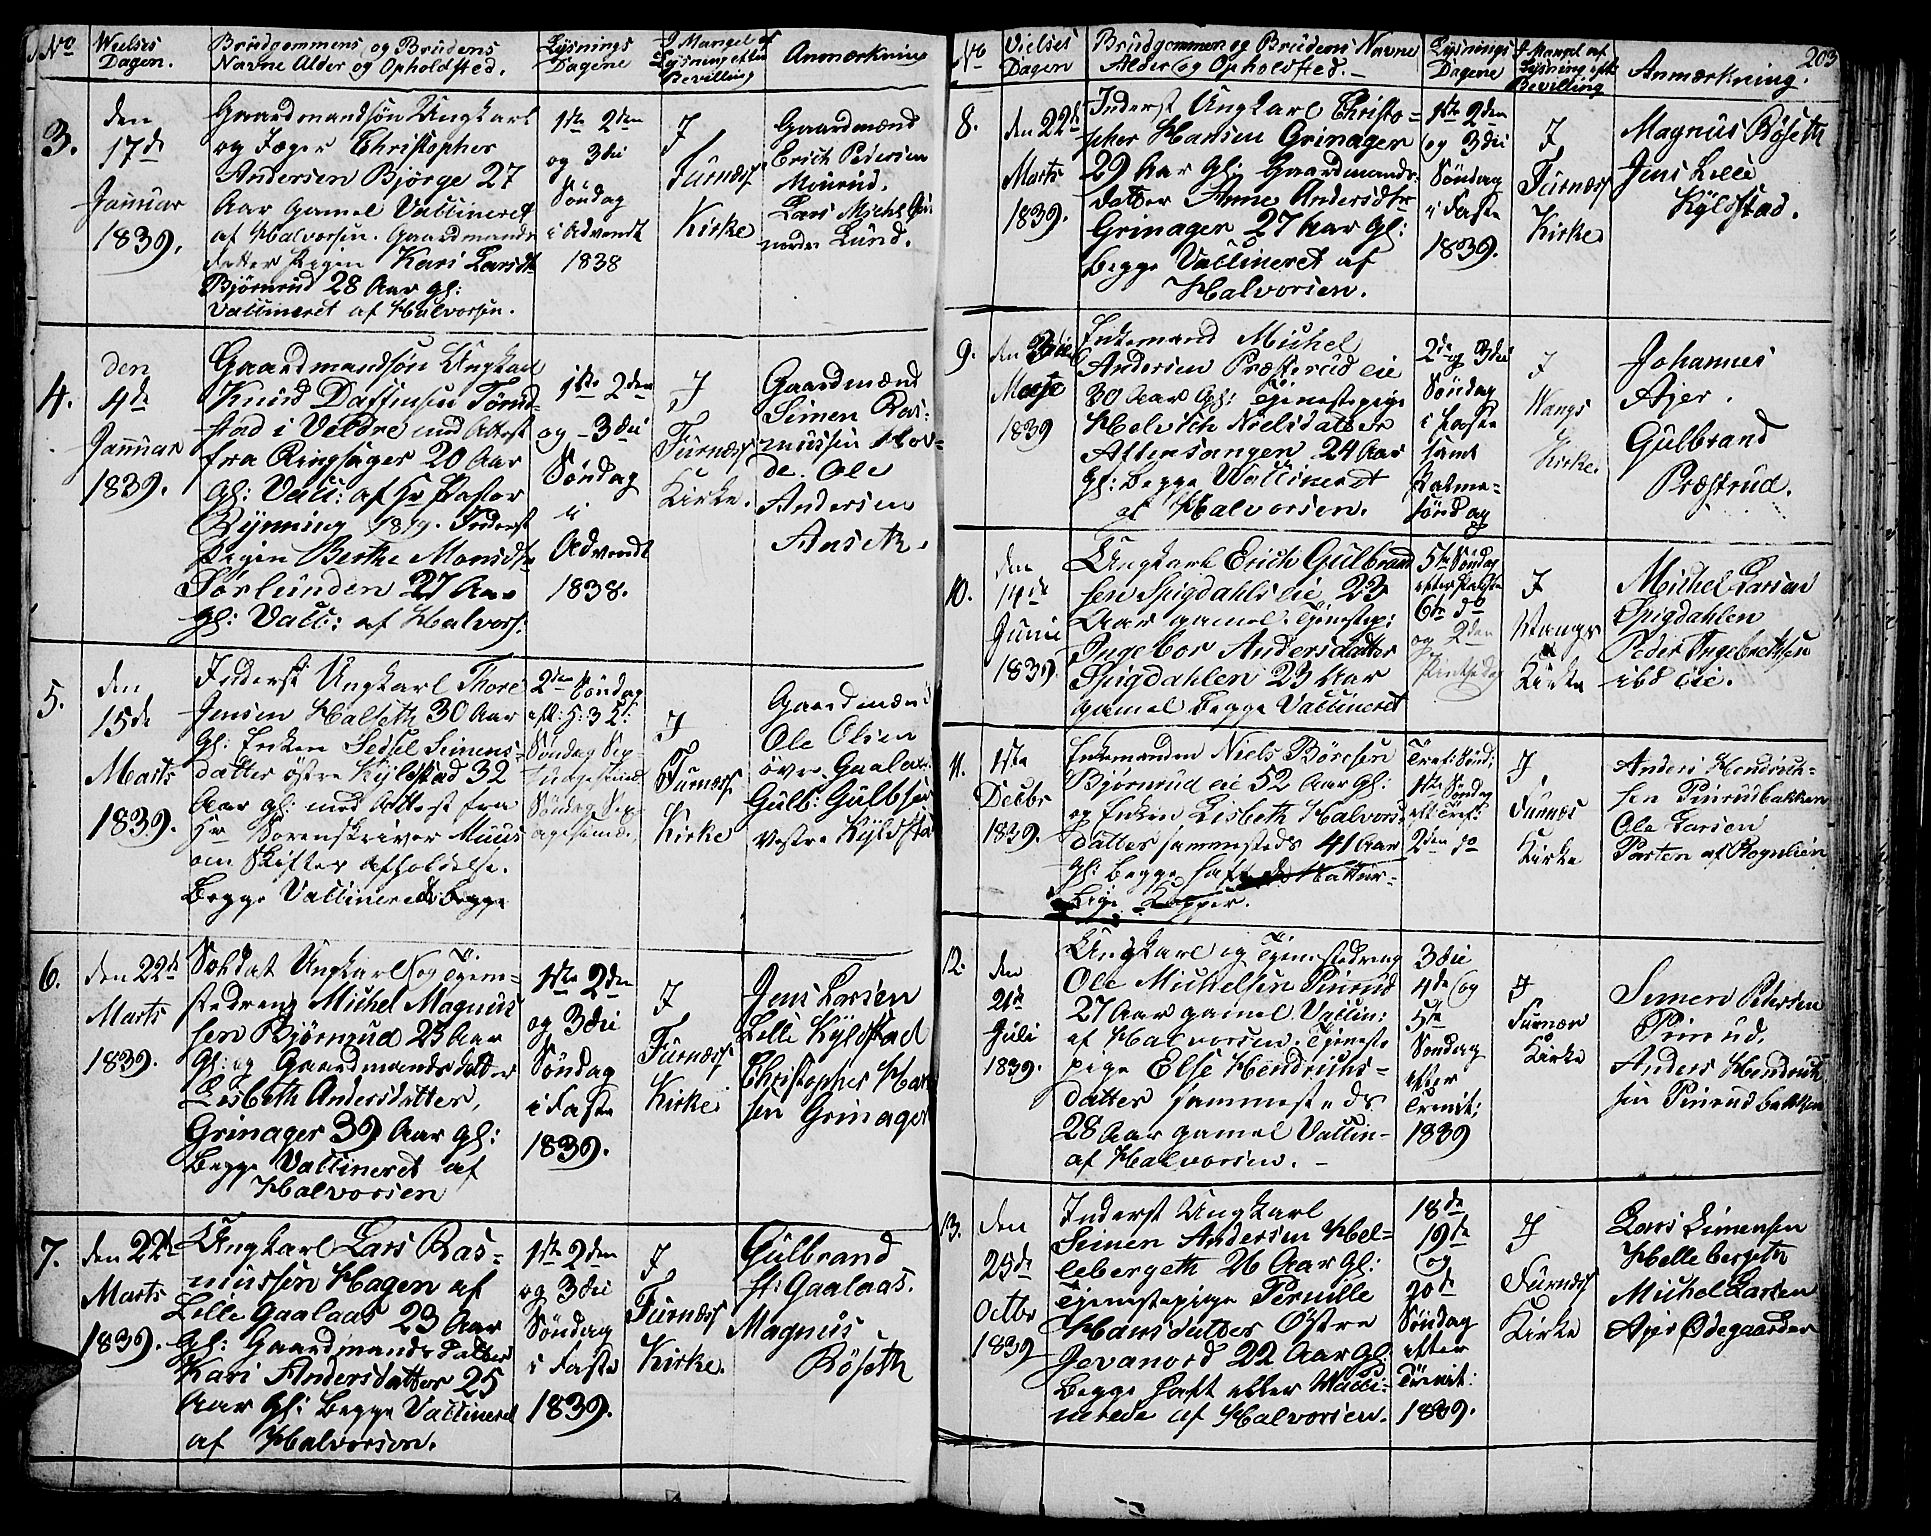 No
Vielses
Dagen.
Brudgommens og Brudens
Navne Alder og Opholdsted.
Lysnings
Dagene
I Mangel af
Lysning efter
Bevilling
Anmærkning
3.
den
17de
Januar
1839.
Gaardmandsøn Ungkarl
og Jæger Christopher
Andersen Bjørge 27
Aar gamel Vaccineret
af Halvorsen. Gaardmands
datter Pigen Kari Larsdtr
Bjørnrud 28 Aar gl:
Vaccineret af Halvorsen.
1ste 2den
og 3die
Søndag
i Advendt
1838
I
Furnæss
Kirke
Gaardmænd
Erich Pedersen
Lars Michl
Lund.
4.
den
4de
Januar
1839.
Gaardmandsøn Ungkarl
Knud Daffinsen
stad i Veldre med Attest
fra Ringsager 20 Aar
gl: Vacc: af Hr Pastor
Rynning 1819. Inderst
Pigen Berthe Monsdtr
Sørlunden 27 Aar
gl: Vacc: af Halvors:
1ste 2den
og 3die
Søndag
i
Advendt
1838.
I
Furnæss
Kirke.
Gaardmænd
Simen Ras-
mussen Hov-
de. Ole
Andersen
Anseth.
5.
den
15de
Marts
1839.
Inderst Ungkarl Thore
Jensen Halseth 30 Aar
gl: Enken Sedsel Simens-
datter østre Kyldstad 32
Aar gl: med Attest fra
Hr Sorenskriver Muus
om Skiftes afholdelse.
Begge Vaccinerede
2den Søndag
eft: H: 3 K:
Søndag Sep-
tuagesima
Søndag Sex-
agesima.
I
Furnæss
Kirke
Gaardmænd
Ole Olsen
øvre Gaalaas
Gulb: Gulbsen
Vestre Kyldsta
6.
den 22de
Marts
1839.
Soldat Ungkarl og Tjene-
stedreng Michel Magnus
sen Bjørnrud 25 Aar
gl: og Gaardmandsdatter
Lisbeth Andersdatter,
Grinager 39 Aar gl:
begge Vaccineret af
Halvorsen
1ste 2den
og 3die
Søndag
i Faste
1839.
I
Furnæss
Kirke
Jens Larsen
Lille Kyldstad
Christopher Han
sen Grinager
7.
den 22de
Marts
1839.
Ungkarl Lars Ras-
mussen Hagen af
Lille Gaalaas 23 Aar
gl: Gaardmandsdatter
Kari Andersdatter 25
Aar gl: begge Vaccineret
af Halvorsen.
1ste 2den
og 3die
Søndag
i Faste
1839.
I
Furnæss
Kirke.
Gulbrand
st: Gaalaas.
Magnus
Røseth
203
No
Vielses
Dagen
Brudgommen og Brudens Navne
Alder og Opholdsted.
Lysnings
Dagene
I Mangel af
Lysning eft
Bevilling
Anmærkning.
8.
den 22de
Marts
1839.
Inderst Ungkarl Christo-
pher Hansen Grinager
29 Aar gl: Gaardmands-
datter Anne Andersdtr
Grinager 27 Aar gl:
begge Vaccineret af
Halvorsen.
1ste 2den
og 3die
Søndag
i Faste
1839.
I
Furnæss
Kirke.
Magnus Røseth
Jens Lille
Kyldstad.
9.
den
1839
Enkemand Michel
Andersen Præsterud eie
30 Aar gl: Tjenestepige
Nielsdatter
Attensangen 24 Aar
gl: begge Vaccineret
af Halvorsen.
2de og 3die
Søndag
i Faste
samt
Palme-
søndag
I
Vangs
Kirke.
Johannes
Ajer.
Gulbrand
Præstrud.
10.
den
14de
Junii
1839.
Ungkarl Erich Gulbrand
sen Spigdahls eie 22
Aar gamel. Tjenestep:
Ingebor Andersdatter
Spigdahlen 23 Aar
gamel begge Vaccineret
5te Søndag
efter Paaske
6te do
og 2den
Pintsedag
I
Vangs
Kirke
Michel Larsen
Spigdahlen
Peder Ingebrethsen
ibd eie.
11.
1ste
Decbr
1839.
Enkemanden Niels Børesen
Bjørnrud eie 52 Aar gl:
og Enken Lisbeth Halvors
datter sammesteds 41 Aar
gl: begge haft de Natur-
lige Kopper.
Tref: Sønd:
1ste Søndag
eft Tref:
2den do
I
Furnæs
Kirke
Anders Hendrich-
sen Pinrudbakken
Ole Larsen
Parten af Rognlien
12.
den
21de
Juli
1839.
Ungkarl og Tjenestedreng
Ole Michelsen Pinrud
27 Aar gamel Vaccin:
af Halvorsen. Tjeneste
pige Else Hendrichs-
datter sammesteds
28 Aar gamel Vaccin-
af Halvorsen.
3die
4de og
5te
Søndag
efter
Trinit:
1839
I
Furnæs
Kirke
Simen Pedersen
Pinrud.
Anders Hendrich
sen Pinrudbakken
13.
den
25de
Octbr
1839
Inderst Ungkarl
Simen Andersen Hel-
lebergeth 26 Aar gl:
Tjenestepige Pernille
Hansdatter Østre
Jevanord 22 Aar gl.
begge haft eller Vacci-
nerede af Halvorsen.
18de
19de
og
20de
Søndag
efter
Trinit:
1839.
I
Furnæss
Kirke
Lars Simensen
Hellebergeth
Michel Larsen
Ajer Ødegaarden